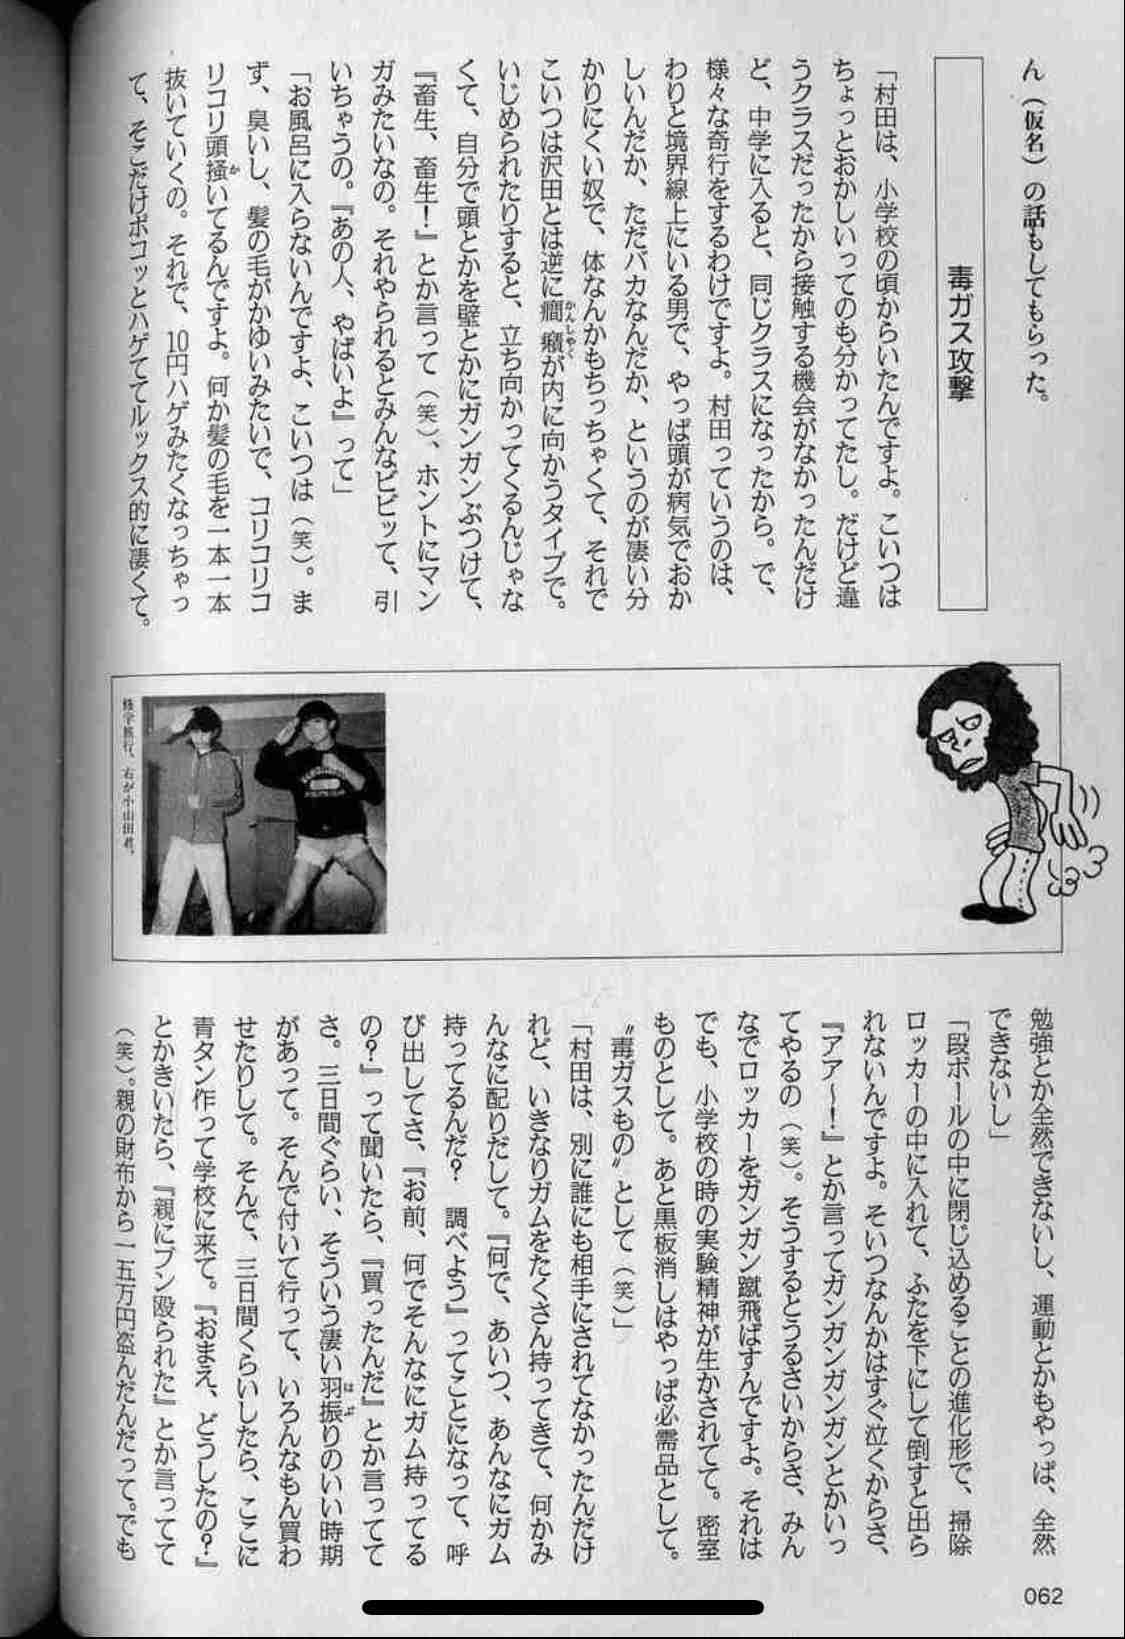 ん（仮名）の話もしてもらった。
毒ガス攻撃
「村田は、小学校の頃からいたんですよ。こいつは
ちょっとおかしいってのも分かってたし。だけど違
うクラスだったから接触する機会がなかったんだけ
ど、中学に入ると、同じクラスになったから。で、
様々な奇行をするわけですよ。村田っていうのは、
わりと境界線上にいる男で、やっぱ頭が病気でおか
しいんだか、ただバカなんだか、というのが凄い分
かりにくい奴で、体なんかもちっちゃくて、それで
こいつは沢田とは逆に癇癪が内に向かうタイプで。
いじめられたりすると、立ち向かってくるんじゃな
くて、自分で頭とかを壁とかにガンガンぶつけて、
『畜生、畜生！』とか言って（笑）、ホントにマン
ガみたいなの。それやられるとみんなビビッて、引
いちゃうの。『あの人、やばいよ』って」
「お風呂に入らないんですよ、こいつは（笑）。ま
ず、臭いし、髪の毛がかゆいみたいで、コリコリコ
リコリ頭掻いてるんですよ。何か髪の毛を一本一本
抜いていくの。それで、10円ハゲみたくなっちゃっ
て、そこだけポコッとハゲててルックス的に凄くて。
修学旅行。右が小山田君。
勉強とか全然できないし、運動とかもやっぱ、全然
できないし」
「段ボールの中に閉じ込めることの進化形で、掃除
ロッカーの中に入れて、ふたを下にして倒すと出ら
れないんですよ。そいつなんかはすぐ泣くからさ、
『アア〜！』とか言ってガンガンガンガンとかいっ
てやるの（笑）。そうするとうるさいからさ、みん
なでロッカーをガンガン蹴飛ばすんですよ。それは
でも、小学校の時の実験精神が生かされてて。密室
ものとして。あと黒板消しはやっぱ必需品として。
〝毒ガスもの〟として（笑）」
「村田は、別に誰にも相手にされてなかったんだけ
れど、いきなりガムをたくさん持ってきて、何かみ
んなに配りだして。『何で、あいつ、あんなにガム
持ってるんだ？　調べよう』ってことになって、呼
び出してさ、『お前、何でそんなにガム持ってる
の？』って聞いたら、『買ったんだ』とか言ってて
さ。三日間ぐらい、そういう凄い羽振りのいい時期
があって。そんで付いて行って、いろんなもん買わ
せたりして。そんで、三日間くらいしたら、ここに
青タン作って学校に来て。『おまえ、どうしたの？』
とかきいたら、『親にブン殴られた』とか言ってて
（笑）。親の財布から一五万円盗んだんだって。でも
062